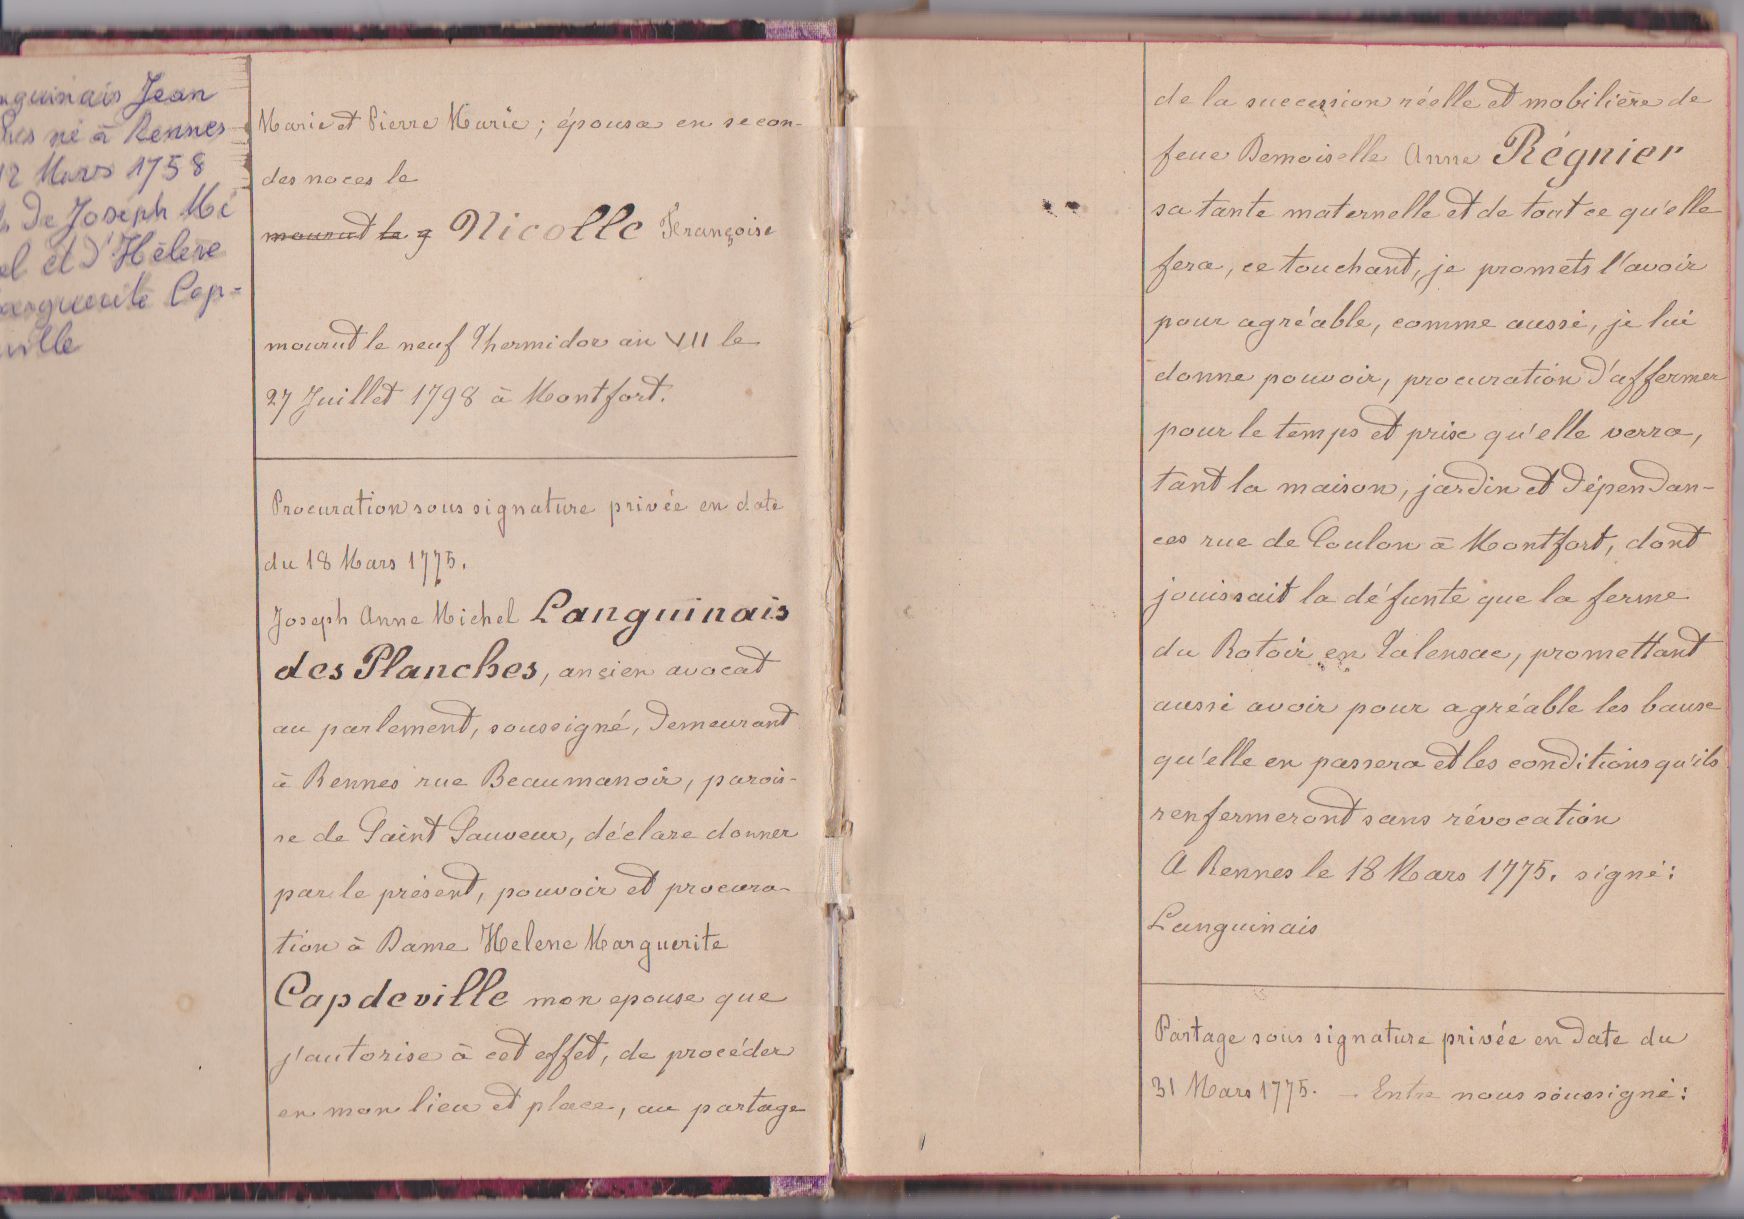 nguinais Jean
hes né à Rennes
12 Mars 1758
De Joseph Mi
el et d'Hélène
arguerite Cap-
ville
Marie et Pierre Marie ; épousa en secon-
des noces le
mourut le 9 Nicolle Françoise
mourut le neuf Thermidor an VII le
27 Juillet 1798 à Montfort.
Procuration sous signature privée en date
du 18 Mars 1775.
Joseph Anne Michel Languinais
des Planches, ancien avocat
au parlement, soussigné, demeurant
à Rennes rue Beaumanoir, parois-
se de Saint Sauveur, déclare donner
par le présent, pouvoir et procura-
tion à Dame Helene Marguerite
Capdeville mon epouse que
j'autorise à cet effet, de procéder
en mon lieu et place, au partage
de la succession réelle et mobilière de
feue Demoiselle Anne Régnier
sa tante maternelle et de tout ce qu'elle
fera, ce touchant, je promets l'avoir
pour agréable, comme aussi, je lui
donne pouvoir, procuration d'affermer
pour le temps et prix qu'elle verra,
tant la maison, jardin et dépendan-
ces rue de Coulon à Montfort, dont
jouissait la défunte que la ferme
du Rotoir en Talensac, promettant
aussi avoir pour agréable les baux
qu'elle en passera et les conditions qu'ils
renfermeront sans révocation
A Rennes le 18 Mars 1775. signé :
Languinais
Partage sous signature privée en date du
31 Mars 1775. — Entre nous soussigné :